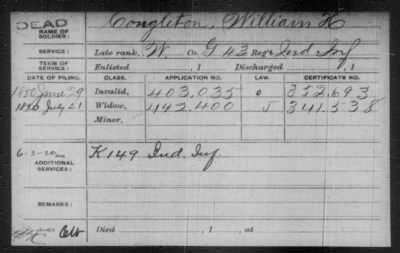 DEAD
NAME OF SOLDIER: Congleton, William H
SERVICE: Late rank, W. Co. G 43 Reg't Ind Inf
TERM OF SERVICE: Enlisted , 1 Discharged , 1
DATE OF FILING. CLASS. APPLICATION NO. LAW. CERTIFICATE NO.
1880 June 29 Invalid, 403,035 0 352.693
1890 July 21 Widow, 442,400 5 341.538
Minor,
6-3-20 K 149 Ind. Inf
ADDITIONAL SERVICES:
REMARKS:
Died , 1 , at